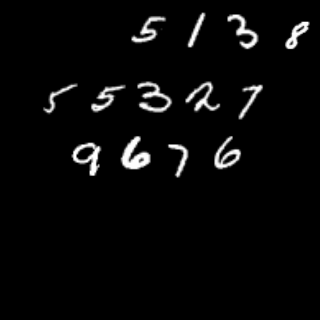 5 1 3 8
5 5 3 2 7
9 6 7 6